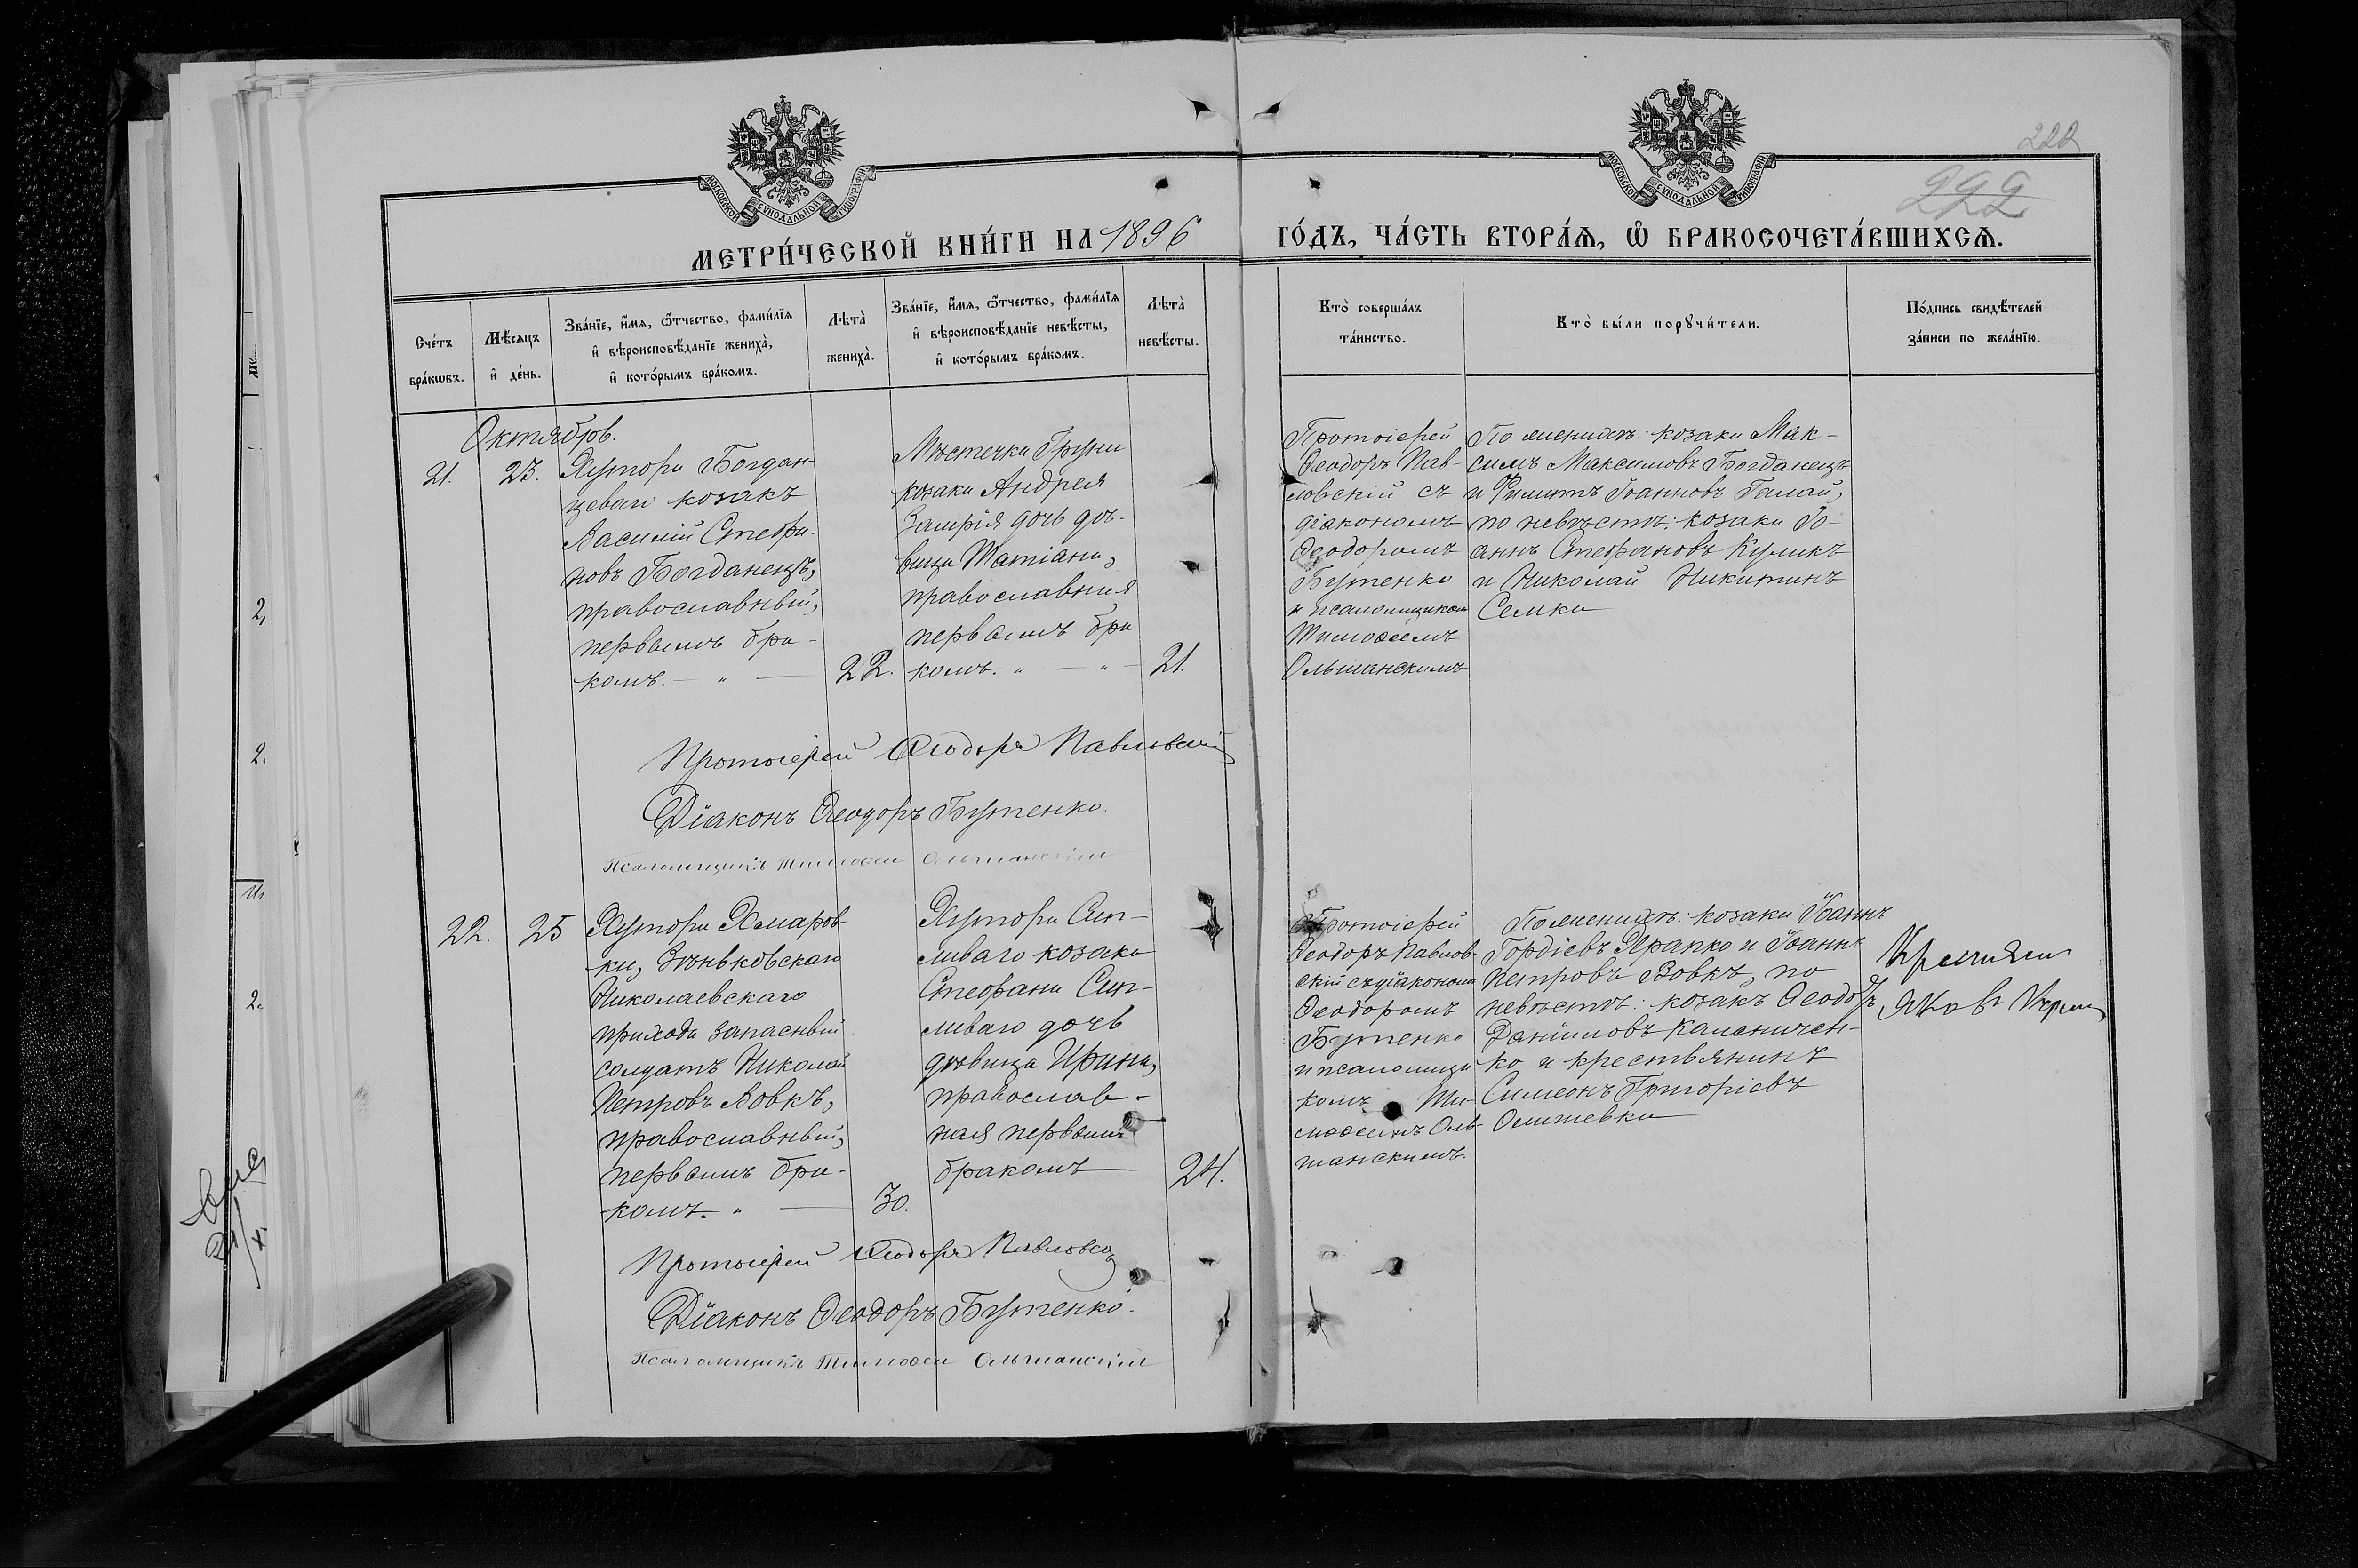 222
222
МОСКОВСКОЙ СѴНОДАЛЬНОЙ ТИПОГРАФІИ
МОСКОВСКОЙ СѴНОДАЛЬНОЙ ТИПОГРАФІИ
МЕТРИ́ЧЕСКОЙ КНИ́ГИ НА 1896 ГО́ДЪ, ЧА́СТЬ ВТОРА́Ѧ, Ѿ БРАКОСОЧЕТА́ВШИХСѦ.
Сче́тъ
бра́кѡвъ.
Мѣ́сѧцъ
и҆ де́нь.
Зва́нїе, и҆́мѧ, ѻ҆́тчество, фами́лїѧ
и҆ вѣроисповѣ́данїе жениха̀,
и҆ кото́рымъ бра́комъ.
Лѣта̀
жениха̀.
Зва́нїе, и҆́мѧ, ѻ҆́тчество, фами́лїѧ
и҆ вѣроисповѣ́данїе невѣ́сты,
и҆ кото́рымъ бра́комъ.
Лѣта̀
невѣ́сты.
Кто̀ соверша́лъ
та́инство.
Кто̀ бы́ли порꙋчи́тели.
По́дпись свидѣ́телей
за́писи по жела́нїю.
Октябрь.
21.
23.
Хутора Богдан-
цеваго козакъ
Василій Стефа-
новъ Богданецъ,
православный,
первымъ бра-
комъ. — „ —
22.
Мѣстечка Груни
козака Андрея
дочь дѣ-
вица Татіана,
православная
первымъ бра
комъ. „ — „ —
21.
Протоіерей
Ѳеодоръ Пав-
ловскій съ
діакономъ
Ѳеодоромъ
Бутенко
и псаломщикомъ
Тимоѳеемъ
Ольшанскимъ
По женихѣ: козаки Мак-
симъ Максимовъ Богданецъ
и Филиппъ Іоанновъ Галай,
по невѣстѣ: козаки Іо-
аннъ Стефановъ Куликъ
и Николай Никитинъ
Семка
Протоіерей Ѳеодоръ Павловскій
Діаконъ Ѳеодоръ Бутенко.
Псаломщикъ Тимоѳей Ольшанскій
22.
25
Хутора Хмаров-
ки, Зѣньковскаго
Николаевскаго
прихода запасный
солдатъ Николай
Петровъ Вовкъ,
православный,
первымъ бра-
комъ. „ —
30.
Хутора Сип-
ливаго козака
Стефана Сип-
ливаго дочь
дѣвица Ирина,
православ-
ная первымъ
бракомъ
24.
Протоіерей
Ѳеодоръ Павлов-
скій съ діакономъ
Ѳеодоромъ
Бутенко
и псаломщи
комъ Ти-
моѳеемъ Оль-
шанскимъ.
По женихѣ: козаки Іоаннъ
Гордіевъ Храпко и Іоаннъ
Петровъ Вовкъ, по
невѣстѣ: козакъ Ѳеодоръ
Даніиловъ Каленичен-
ко и крестьянинъ
Симеонъ Григоріевъ
Протоіерей Ѳеодоръ Павловскій
Діаконъ Ѳеодоръ Бутенко.
Псаломщикъ Тимоѳей Ольшанскій